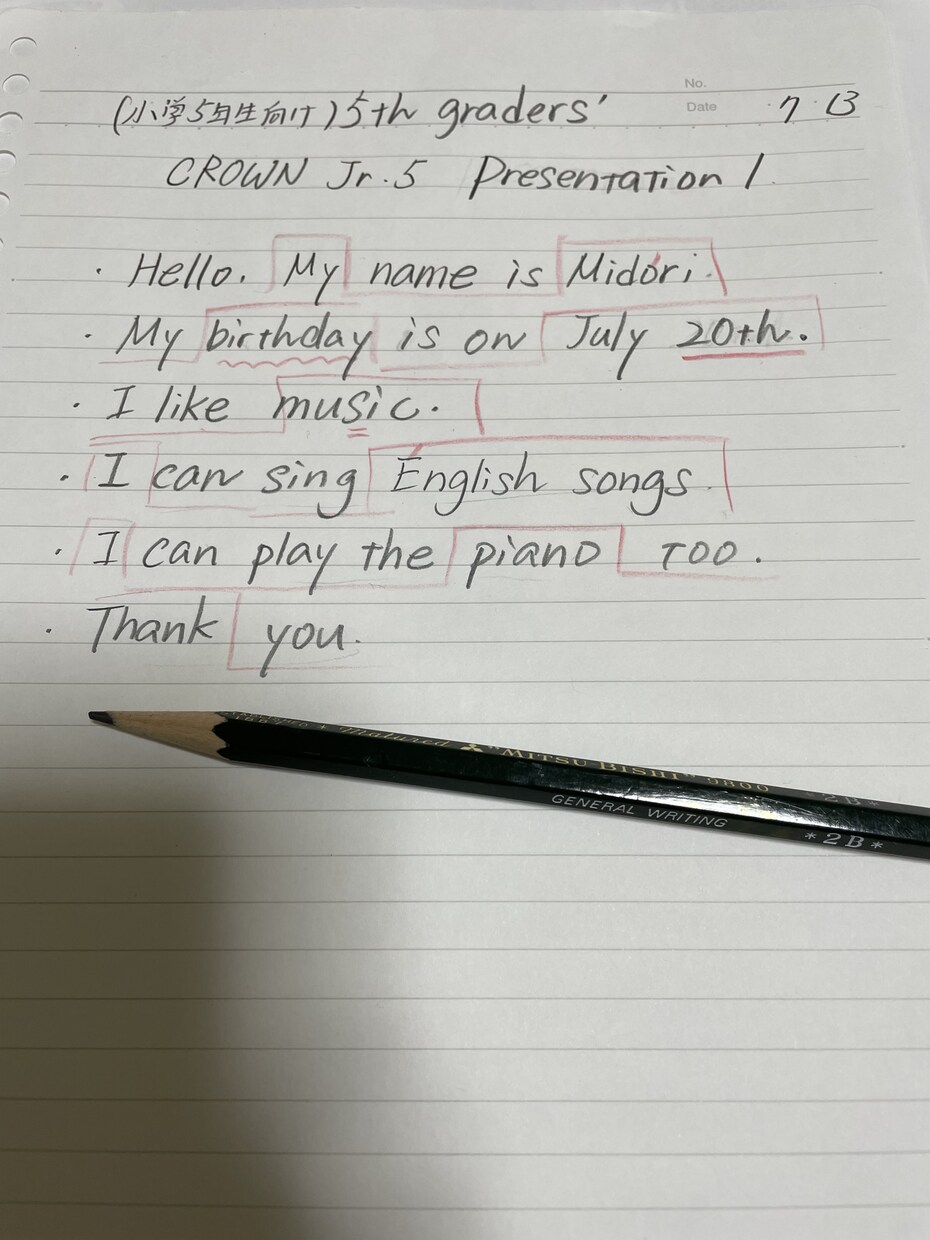 No.
Date 7・13
(小学5年生向け) 5th graders'
CROWN Jr.5 Presentation 1
・Hello. My name is Midori.
・My birthday is on July 20th.
・I like music.
・I can sing English songs.
・I can play the piano too.
・Thank you.
Matured "MITSU BISHI" 9800 *2B*
GENERAL WRITING *2B*